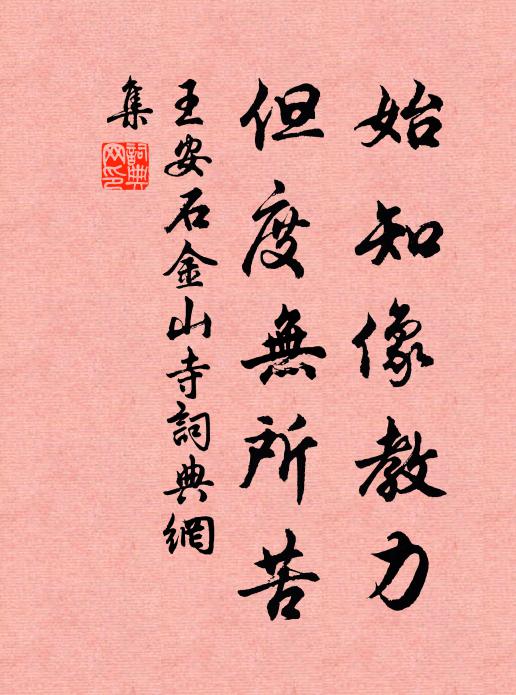 始知像教力
但度無所苦
王安石金山寺詞典網
集
詞典網印